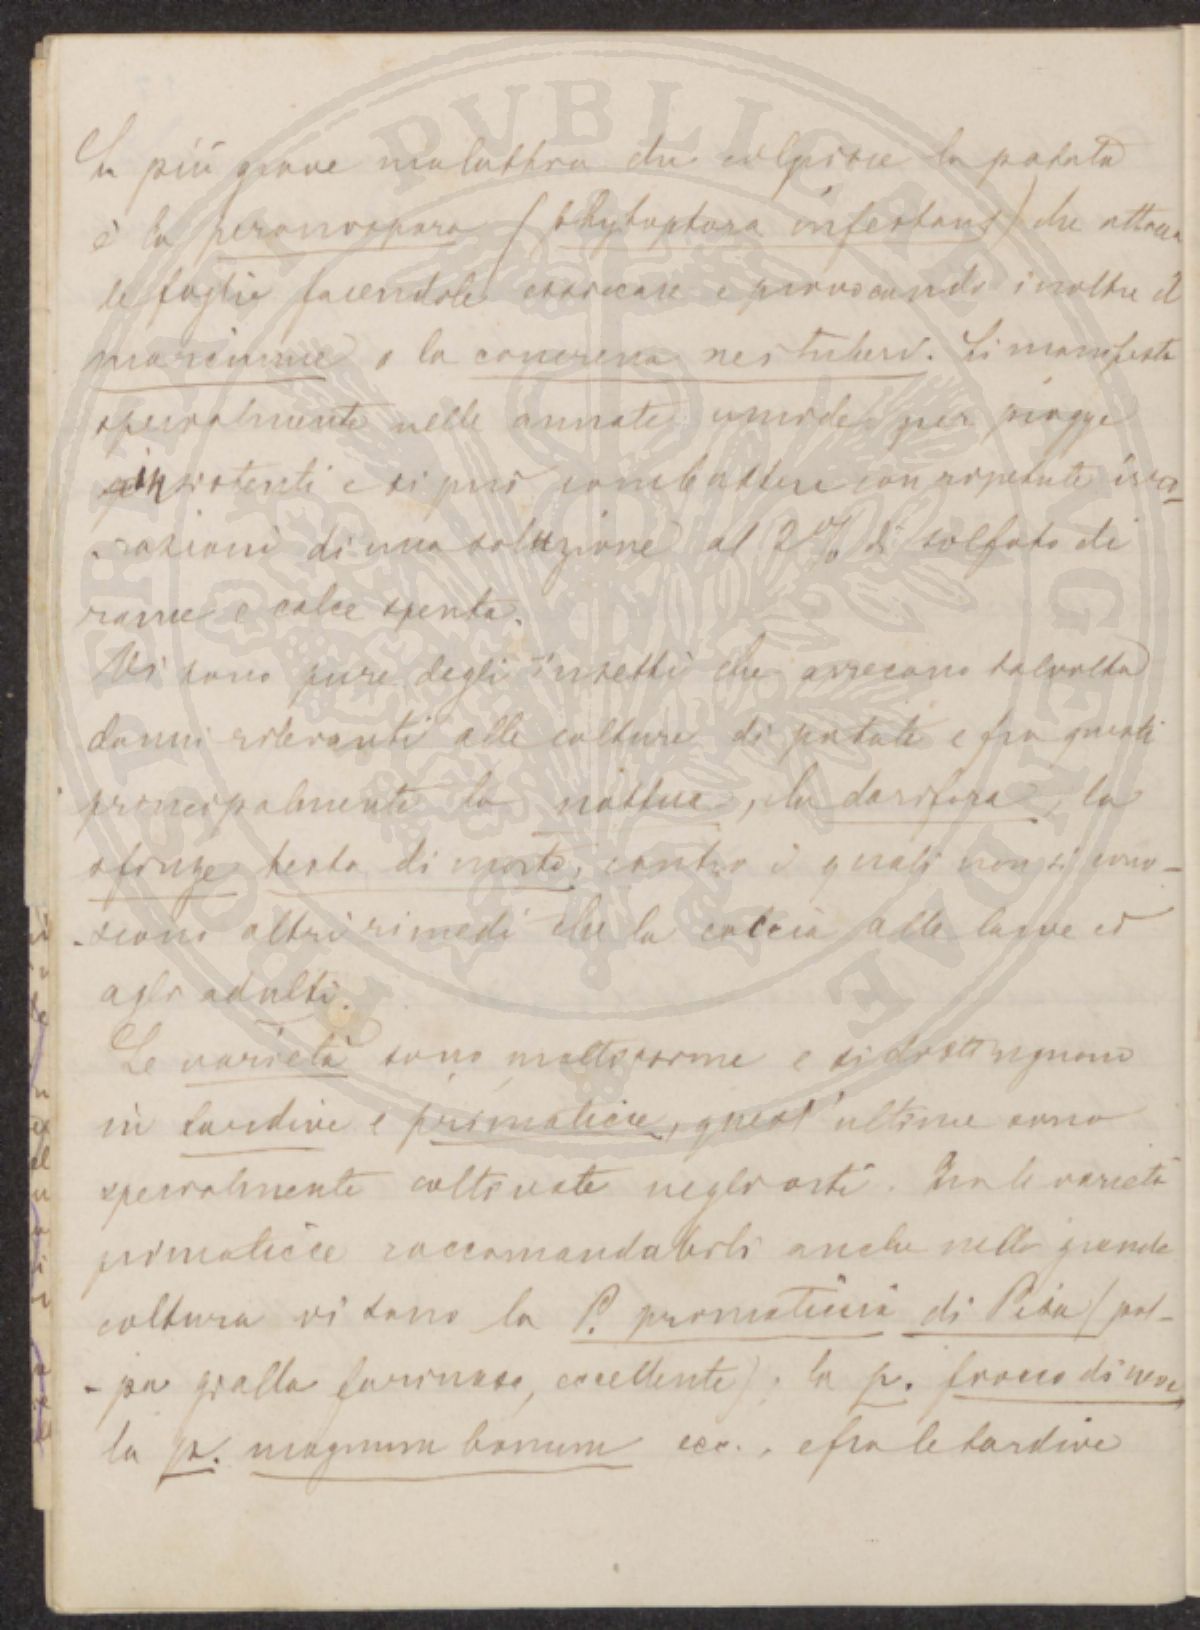 La più grave malattia che colpisce la patata
è la peronospora (phytoptora infestans) che attacca
le foglie facendole essiccare e provocando inoltre il
marciume o la cancrena nei tuberi. Si manifesta
specialmente nelle annate umide per piogge
insistenti e si può combattere con ripetute irro-
-razioni di una soluzione al 2% di solfato di
rame e calce spenta.
Vi sono pure degli insetti che arrecano talvolta
danni rilevanti alle colture di patate e fra questi
principalmente la nottua, la dorifora, la
sfinge testa di morto, contro i quali non si cono-
-scono altri rimedi che la caccia alle larve ed
agli adulti.
Le varietà sono moltissime e si distinguono
in tardive e primaticcie, quest'ultime sono
specialmente coltivate negli orti. Fra le varietà
primaticcie raccomandabili anche nella grande
coltura vi sono la P. primaticcia di Pisa (pol-
-pa gialla farinosa, eccellente), la p. fiocco di neve
la p. magnum bonum ecc., e fra le tardive
PROSPERITATI PVBLICAE AVGENDAE